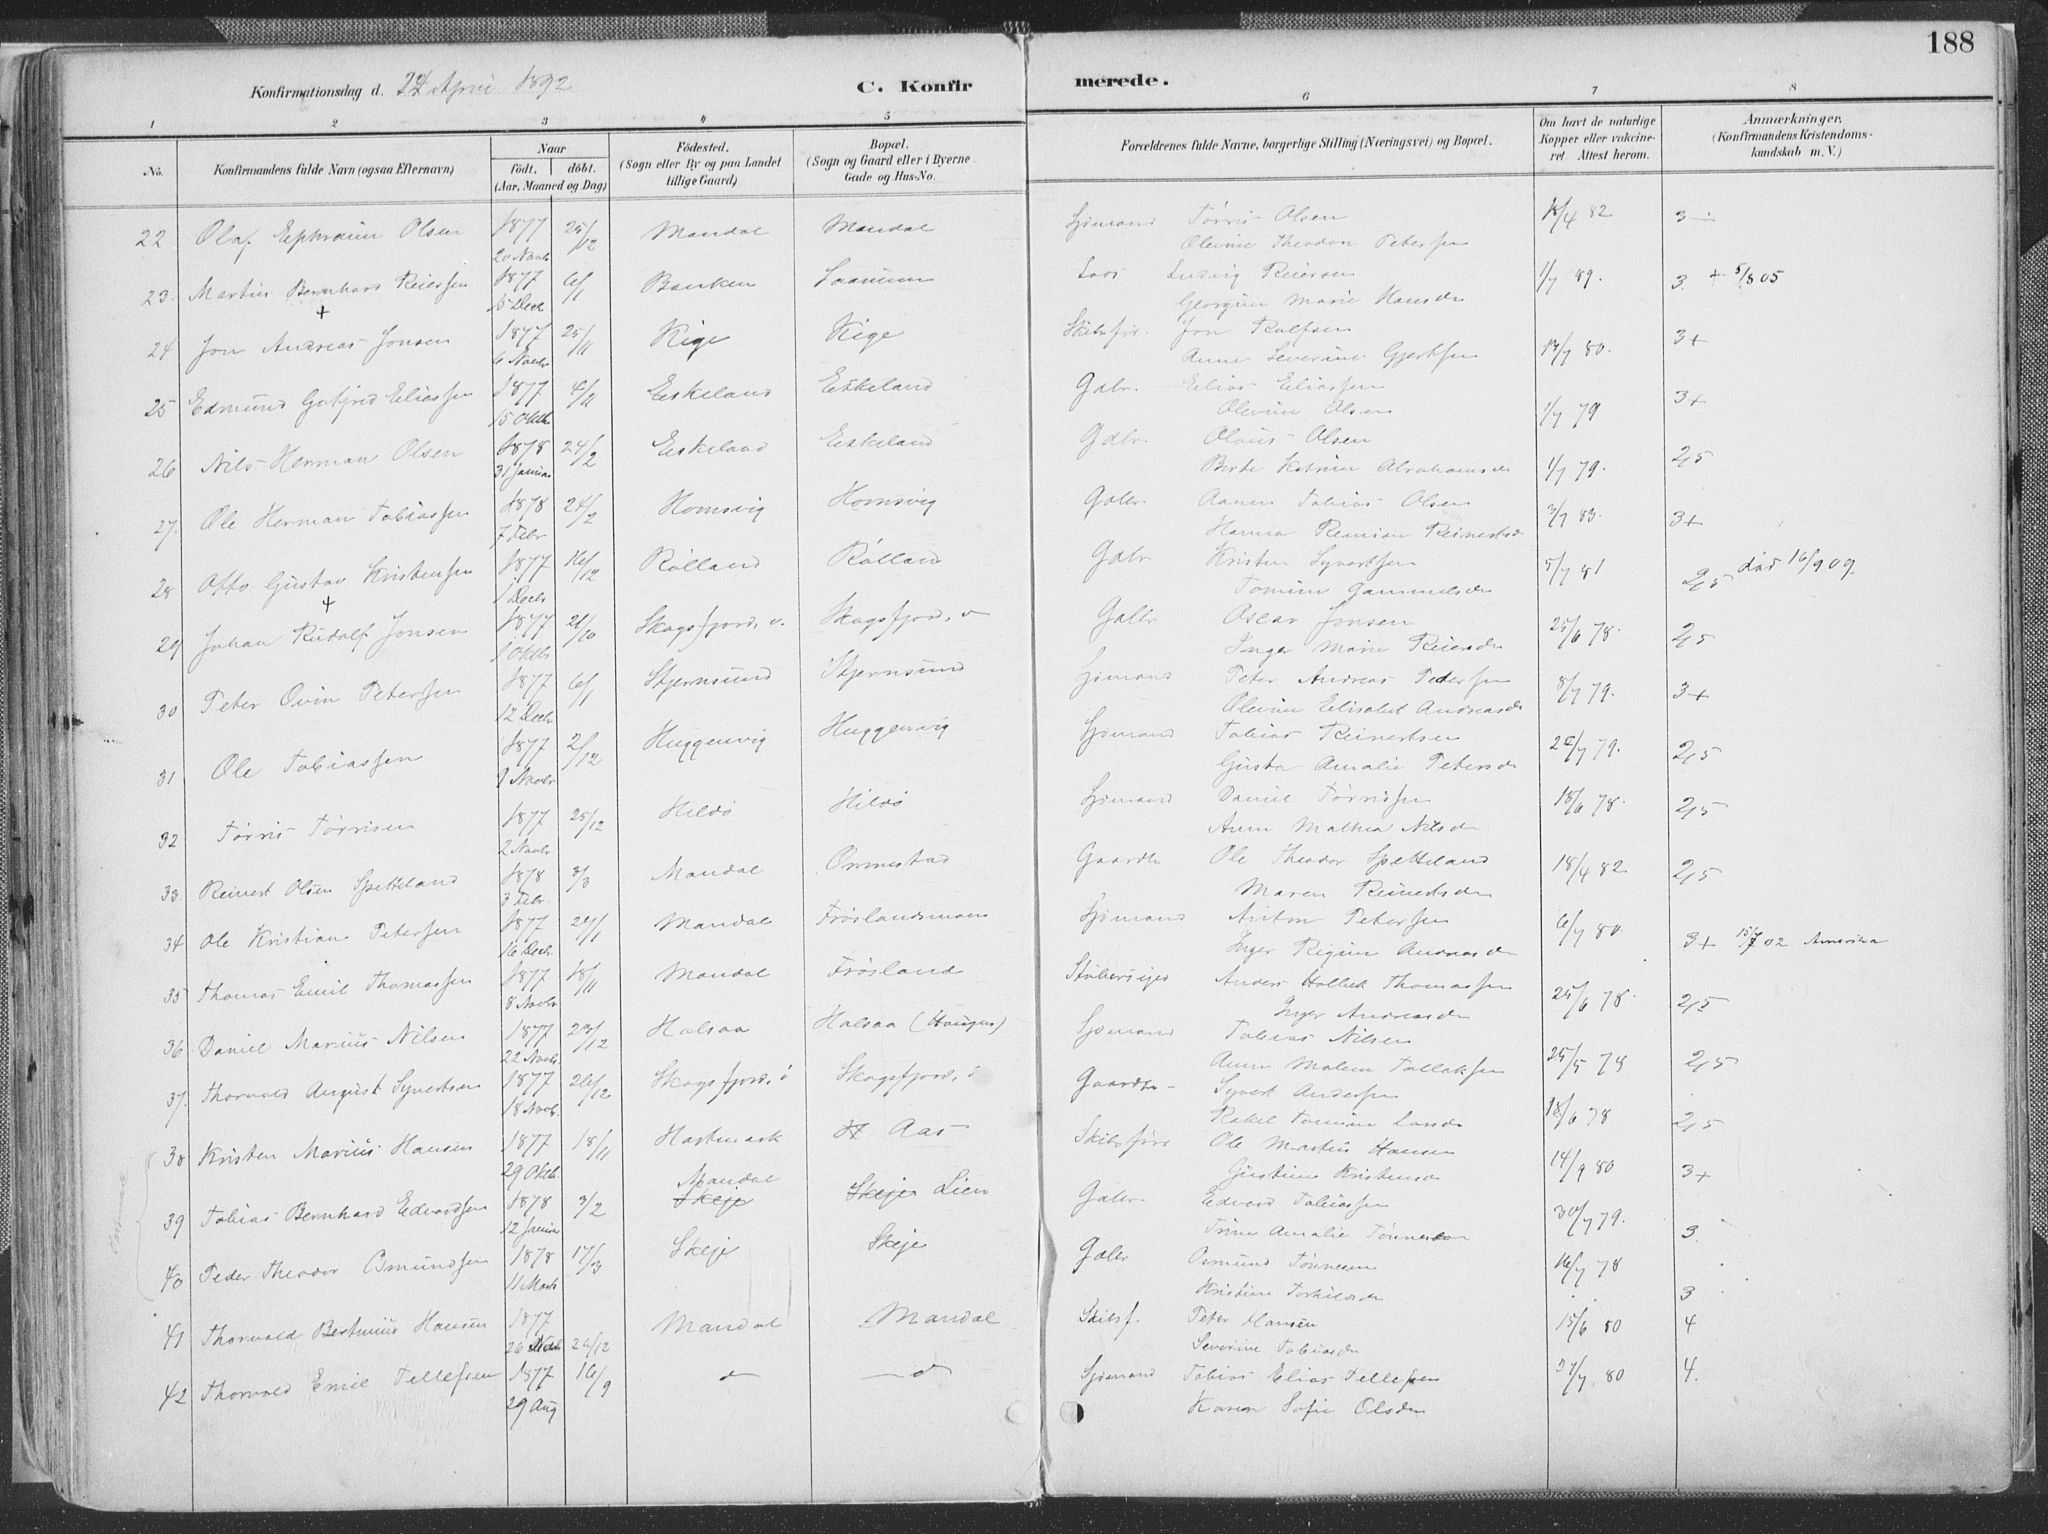 188
Konfirmationsdag d. 24 April 1892
C. Konfirmerede.
1 2 3 4 5 6 7 8
No. Konfirmandens fulde Navn (ogsaa Efternavn) Naar født. døbt. (Aar, Maaned og Dag) Födested. (Sogn eller By og paa Landet tillige Gaard) Bopæl. (Sogn og Gaard eller i Byerne Gade og Hus-No. Forældrenes fulde Navne, borgerlige Stilling (Næringsvei) og Bopæl. Om havt de naturlige Kopper eller vakcineret Attest herom. Anmærkninger. (Konfirmandens Kristendomskundskab m. V.)
22 Olaf Ephraim Olsen 1877 20 Novb 25/12 Mandal Mandal Sjömand Törris Olsen 18/4 82 3 –
Olevine Theodora Peterssen
23. Martin Bernhard Reierssen 1877 15 Decb 6/1 Banken Saanum Lods Ludvig Reiersen 1/7 89. 3. + 5/8 05
Georgine Marie Hansdr
24 Jon Andreas Jonsen 1877 6 Novb 25/11 Kige Kige Skibsför. Jon Rolfsen 17/7 80. 3+
Anne Severine Gjertsen
25 Edmund Gotfred Eliassen 1877 15 Oktb 4/11 Eskeland Eskeland Gdbr. Elias Eliassen 1/7 79 3+
Olevine Olsen
26 Nils Herman Olsen 1878 31 Januar 24/2 Eskeland Eskeland Gdbr. Olaus Olsen 1/7 79. 2,5
Berte Katrine Abrahamsdr
27. Ole Herman Tobiassen 1878 7 Febr 24/2 Homsvig Homsvig Gdbr. Aanen Tobias Olsen 3/7 83. 3+
Hanna Reinertsdr
28 Otto Gustav Kristensen 1877 1 Decb 16/12 Rölland Rölland Gdbr Kristen Syvertsen 5/7 81 2,5 död 16/9 09.
Tomine Gammelsdr
29 Johan Rudolf Jonsen 1877 1 Oktb 21/10 Skogsfjord, v. Skogsfjord, v Gdbr Oscar Jonsen 25/6 78. 2,5
Inger Marie Reiersdr
30 Peter Ovin Peterssen 1877 12 Decb 6/1 Stjernsund Stjernsund Sjömand Peter Andreas Peterssen 8/7 79. 3+
Olevine Elisabet Andreasdr
31 Ole Tobiassen 1877 Novbr 2/12 Huggenvig Huggenvig Sjömand Tobias Reinertsen 7 79. 2,5
Gusta Amalie Petersdr
32 Törris Törrisen 1877 2 Novbr 25/12 Hildö Hildö Sjömand Daniel Törrissen 18/6 78. 2,5
Anne Mathea Nilsdr
33. Reinert Olsen Spetteland 1878 3 Febr. 3/3 Mandal Ommestad Gaardbr Ole Theodor Spetteland 18/4 82 2,5
Maren Reinertsdr
34 Ole Kristian Peterssen 1877 16 Decb. 1 Mandal Fröslandsmoen Sjömand Anton Peterssen 6/7 80. 3+ 15/7 02 Amerika
Inger Regine Andreasdr
35 Thomas Emil Thomassen 1877 8 Novbr 18/11 Mandal Frösland Anders Holbek Thomassen 25/6 78. 2,5
Inger Andreasdr
36 Daniel Marius Nilsen 1877 22 Novb. 23/12 Halsaa Halsaa (Haugen) Sjömand Tobias Nilsen 25/5 78 2,5
Anne Malene Tollaksen
37. Thorvald August Syvertsen 1877 18 Novb. 26/12 Skogsfjord, i Skogsfjord, i Gaardbr. Syvert Anderssen 18/6 78 2,5
Rakel Tomine Larsdr
38 Kristen Marius Hansen 1877 29 Oktb. 18/11 Hartmark Aas Skibsförer Ole Martius Hansen 14/9 80 3+
Gustine Kristensdr
39 Tobias Bernhard Edvardsen 1878 12 Januar 3/2 Mandal Skeje Skeje Lien Gdbr. Edvard Tobiassen 30/7 79. 3.
Trine Amalie Tönnesdr
40 Peder Theodor Osmundsen 1878 11 Marts 17/3 Skeje Skeje Gdbr Osmund Tönnesen 16/7 78 3
Kristine Torkildsdr
41 Thorvald Hansen 1877 26 29/12 Mandal Mandal Skibsf. Peter Hansen 15/6 80 4
Severine Tobiasdr
42 Thorvald Emil Tellefsen 1877 29 Aug 16/9 – d – – d Sjömand Tobias Elias Tellefsen 7 80 4.
Karen Sofie Olsdr